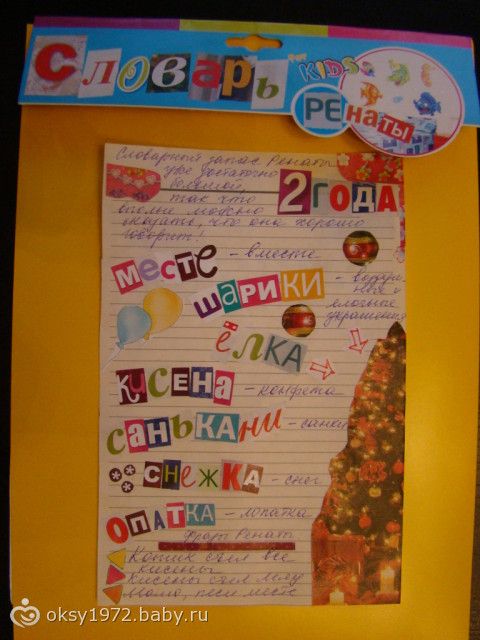 Словарь
FOR KIDS
РЕНАТЫ
Словарный запас Ренаты
уже достаточно
большой,
2 ГОДА
так что
вполне можно
сказать, что она хорошо
говорит!
МЕСТЕ - вместе
ШАРИКИ - воздуш-
ные и
ёлочные
украшения
ЁЛКА
КИСЕНА - конфета
САНЬКАНИ - санки
СНЕЖКА - снег
ОПАТКА - лопатка
Фразы Ренаты
Котик съел все
кисены
Кисены съел
Мама, песи месте
https://oksy1972.baby.ru